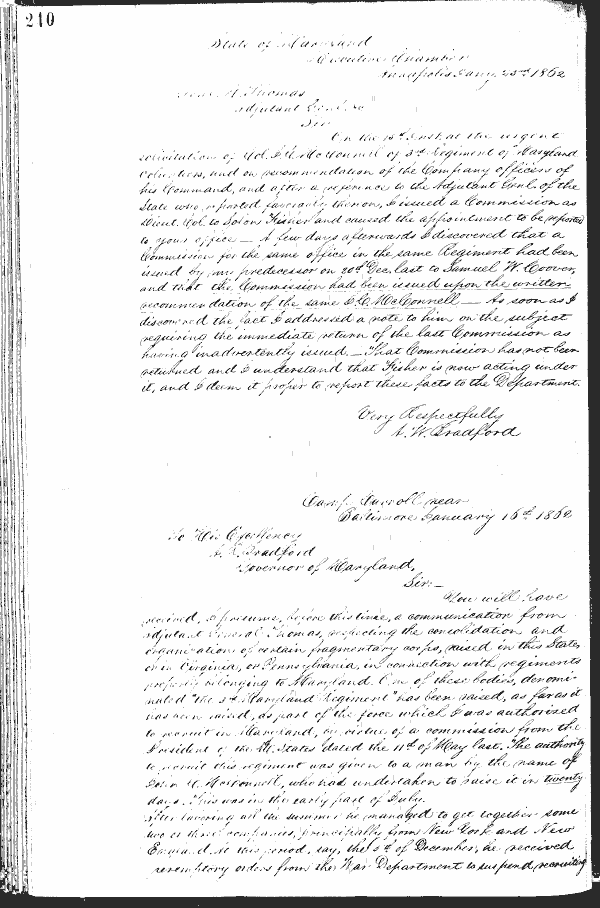 210
State of Maryland
Executive Chamber
Annapolis Jany. 23rd 1862
Thomas
Adjutant Genl. &c
Sir
On the 15th Inst. at the urgent
solicitation of Col. McConnell of 3d Regiment of Maryland
Volunteers, and on recommendation of the Company officers of
his Command, and after a reference to the Adjutant Genl. of the
State who reported favorably thereon, I issued a Commission as
Lieut. Col. to Solon Fisher and caused the appointment to be reported
to your office — A few days afterwards I discovered that a
Commission for the same office in the same Regiment had been
issued by my predecessor on 20th Dec. last to Samuel W. Coover,
and that the Commission had been issued upon the written
recommendation of the same McConnell — As soon as I
discovered the fact I addressed a note to him on the subject
requiring the immediate return of the last Commission as
having inadvertently issued. — That Commission has not been
returned and I understand that Fisher is now acting under
it, and I deem it proper to report these facts to the Department.
Very Respectfully
A. W. Bradford
Camp Carroll near
Baltimore January 16th 1862
To His Excellency
Bradford
Governor of Maryland,
Sir:—
You will have
received, I presume, before this time, a communication from
Adjutant General Thomas, respecting the consolidation and
organization of certain fragmentary corps, raised in this State,
or in Virginia, or Pennsylvania, in connection with regiments
properly belonging to Maryland. One of these bodies, denomi-
nated "the 3d Maryland Regiment" has been raised, as far as it
has been raised, as part of the force which I was authorized
to recruit in Maryland, by virtue of a commission from the
President of the U. States dated the 11th of May last. The authority
to recruit this regiment was given to a man by the name of
John C. McConnell, who had undertaken to raise it in twenty
days. This was in the early part of July.
After laboring all the summer he managed to get together some
two or three companies, principally from New York and New
England. At this period, say, the of December, he received
peremptory orders from the War Department to suspend recruiting